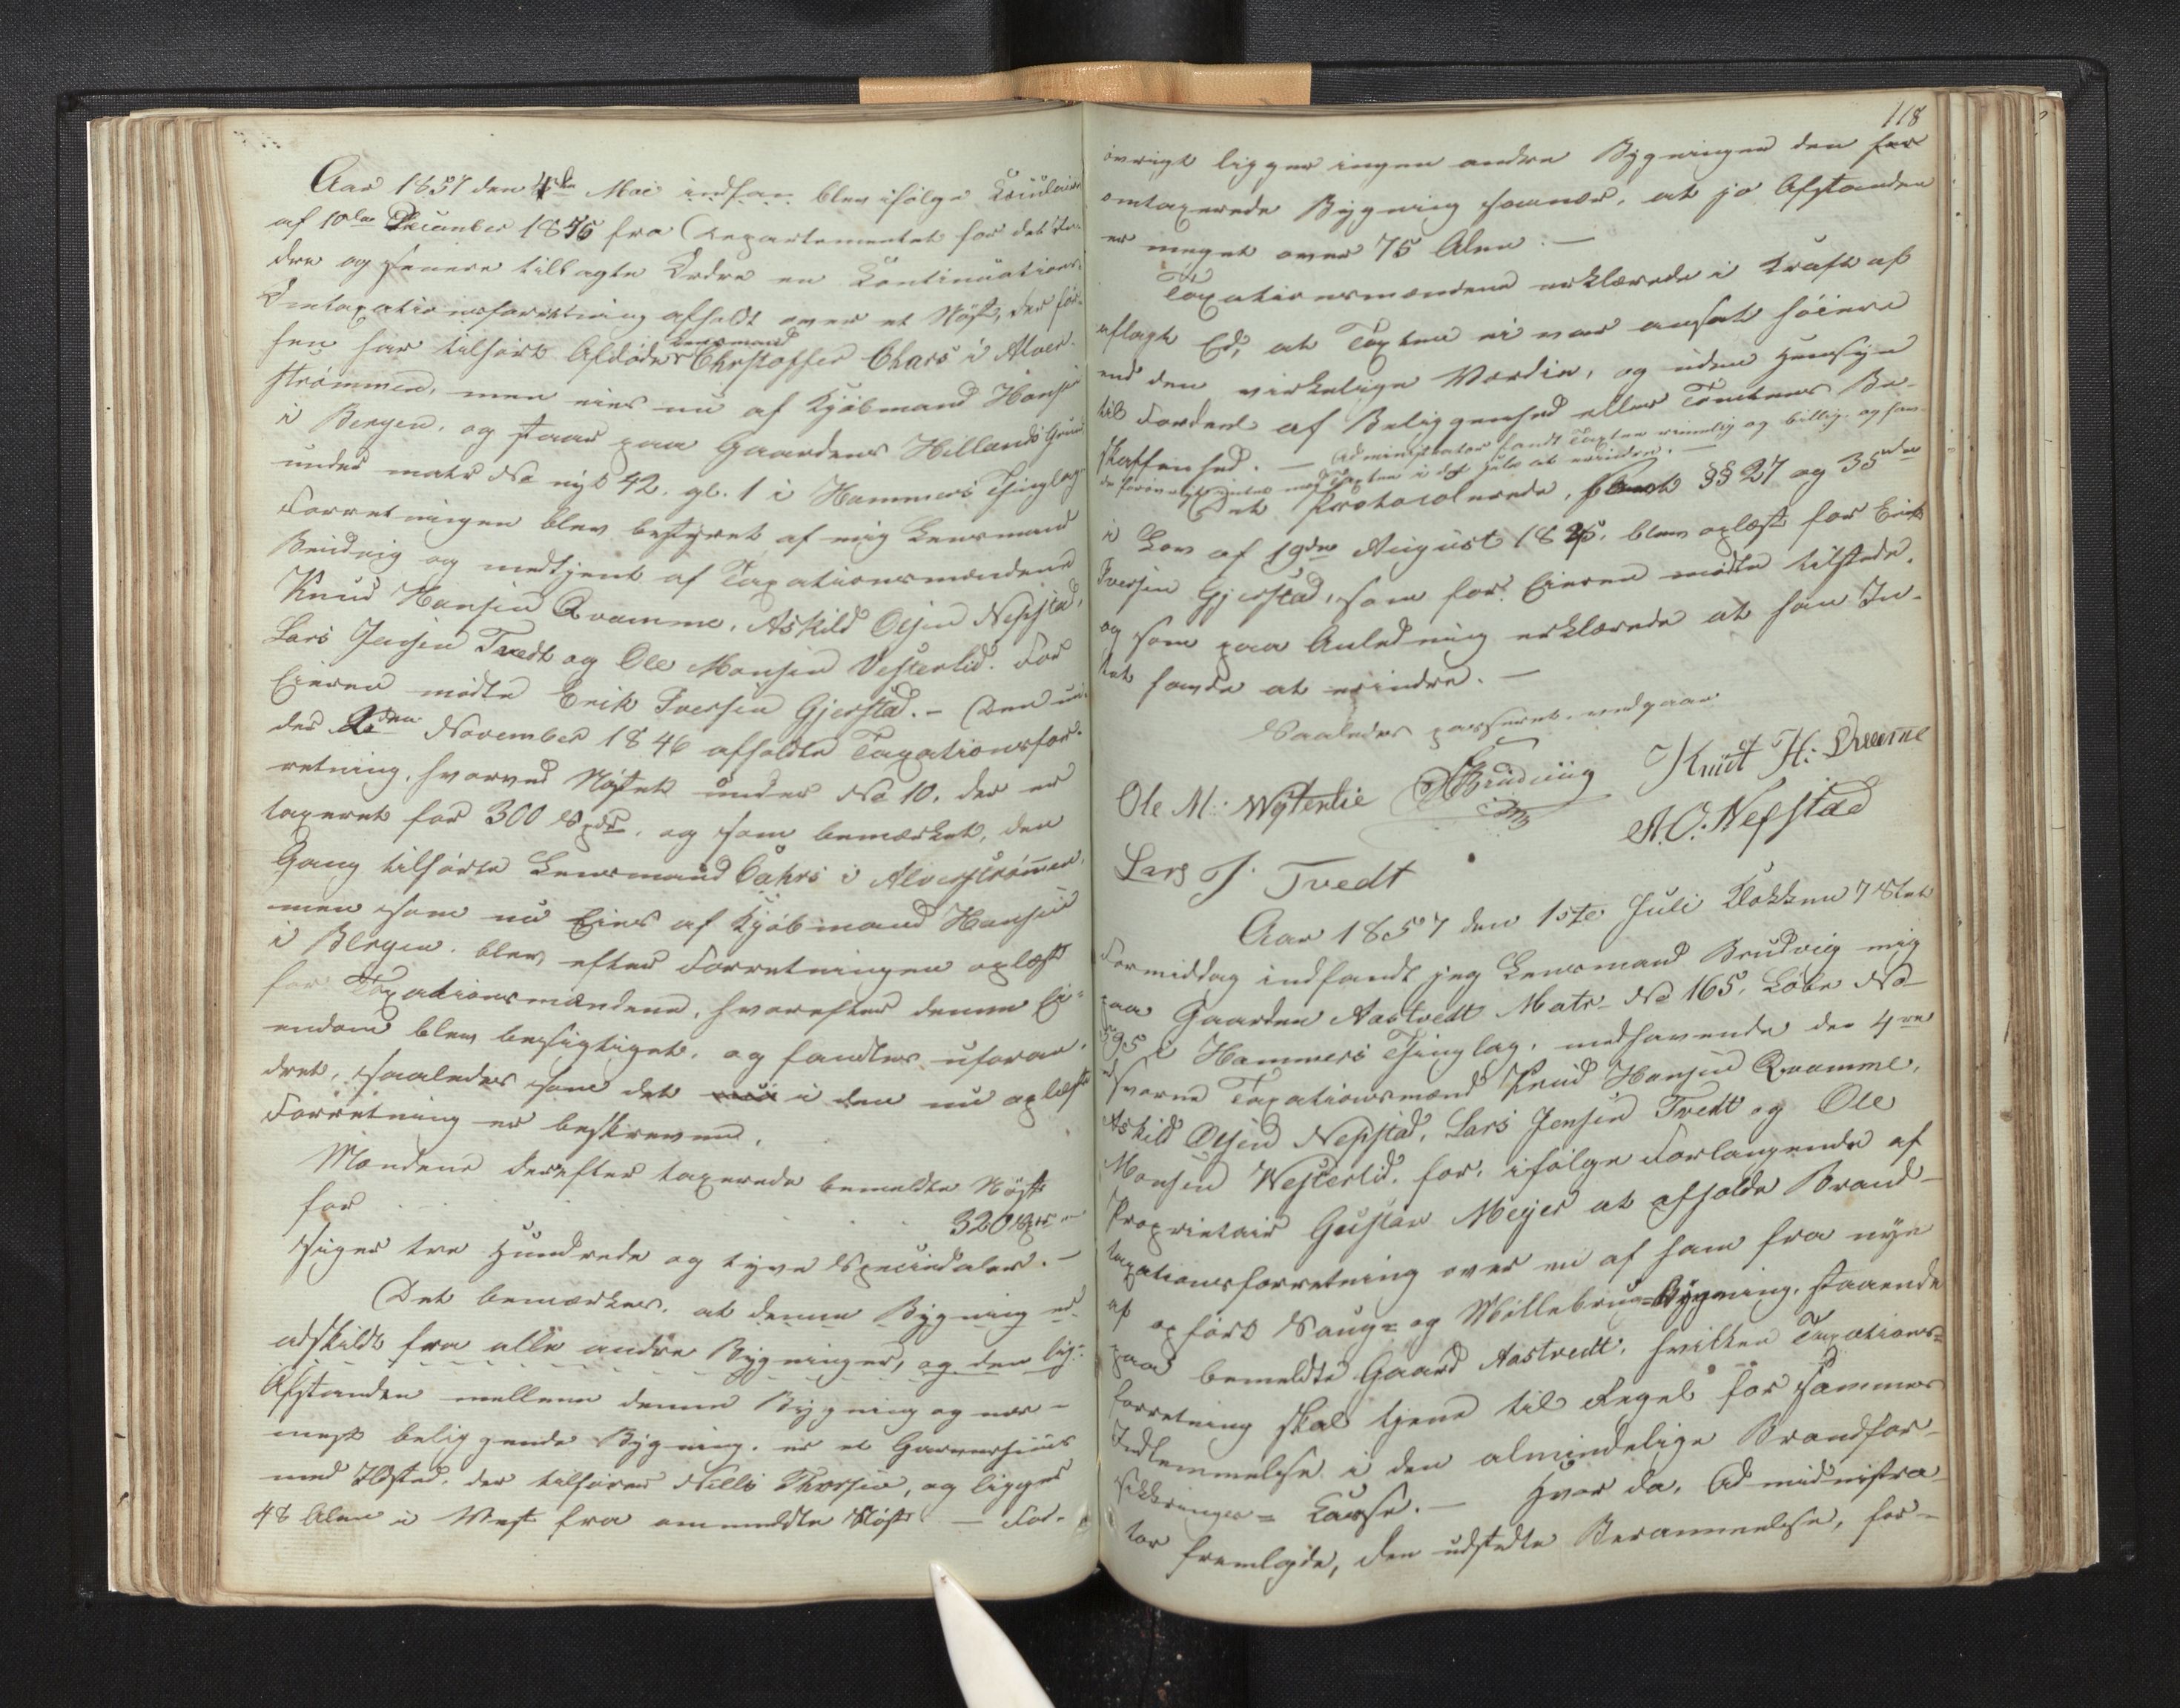 Aar 1857 den 4de Mai indhan blev ifølge Circulaire
af 10de December 1846 fra Departementet for det In-
dre og senere tillagte Ordre en Continuations
Omtaxationsforretning afholdt over et Nøst, der før-
hen har tilhørt Afdøde Lensmand Christoffer Chars i Alver-
strømmen, men eies nu af Kjøbmand Hansen
i Bergen, og staar paa Gaardens Hillands Grund
under matr No nyt 42, gl. 1 i Hammers Thinglag
Forretningen blev bestyret af mig Lensmand
Brudvig og medtjent af Taxationsmændene
Knud Hansen Qvamme, Askild Olsen Nepstad,
Lars Jensen Tvedt og Ole Monsen Vesterlid. For
Eieren mødte Erik Iversen Gjerstad. – Den un-
der 2den November 1846 afholdte Taxationsfor-
retning, hvorved Nøstet under No 10, der er
taxeret for 300 Spdr, og som bemærket, den
Gang tilhørte Lensmand Cahrs i Alverstrømmen,
men som nu Eies af Kjøbmand Hansen
i Bergen, blev efter Forretningen oplæst
for Taxationsmændene, hvorefter denne Ei-
endom blev besigtiget, og fandtes uforan-
dret, saaledes som det i den nu oplæste
Forretning er beskreven.
Mændene derefter taxerede bemeldte Nøst
for . . . . . . 320 Spdr
siger tre Hundrede og tyve Speciedaler. –
Det bemærkes, at denne Bygning er
adskildt fra alle andre Bygninger, og den lig-
Afstanden mellem denne Bygning og nær-
mest beliggende Bygning, er et Garverhuus
med Ildsted, der tilhører Nills Thorsen, og ligger
48 Alen i Vest fra ommeldte Nøst – For-
118
øvrigt ligger ingen andre Bygninger den her
omtaxerede Bygning saanær, at jo Afstanden
er meget over 75 Alen. –
Taxationsmændene erklærede i Kraft af
aflagte Ed, at Taxten ei var ansat høiere
end den virkelige Værdie, og uden Hensyn
til Fordeel af Beliggenhed eller Tomtens Be-
skaffenhed. – Administrator fandt Taxten rimelig og billig, og hav-
de forøvrigt intet mod Taxten i det Hele at erindre. –
Det Protocolerede, samt §§ 27 og 35 
i Lov af 19de August 1845, blev oplæst for Erik
Iversen Gjerstad, som for Eieren mødte tilstede,
og som paa Anledning erklærede at han In-
tet havde at erindre. –
Saaledes passeret, vedgaar
Ole M: Westerlie Brudvig Knut H: Qvamme
A. O: Nepstad
Lars J. Tvedt
Aar 1857 den 1ste Juli Klokken 7 Slet
Formiddag indfandt jeg Lensmand Brudvig mig
paa Gaarden Aastvedt Matr- No 165, Løbe No
595 i Hammers Thinglag, medhavende de 4re
edsvorne Taxationsmænd Knud Hansen Qvamme,
Askild Olsen Nepstad, Lars Jensen Tvedt og Ole
Monsen Westerlid, for, ifølge Forlangende af
Proprietair Gustav Meyer at afholde Brand-
taxationsforretning over en af ham fra nye
af opført Saug- og Møllebrug-Bygning, staaende
paa bemeldte Gaard Aastvedt, hvilken Taxations-
forretning skal tjene til Regel for sammes
Indlemmelse i den almindelige Brandfor-
sikkrings- Casse. – Hvor da, Administra-
tor fremlagde, den udstedte Berammelse, for-